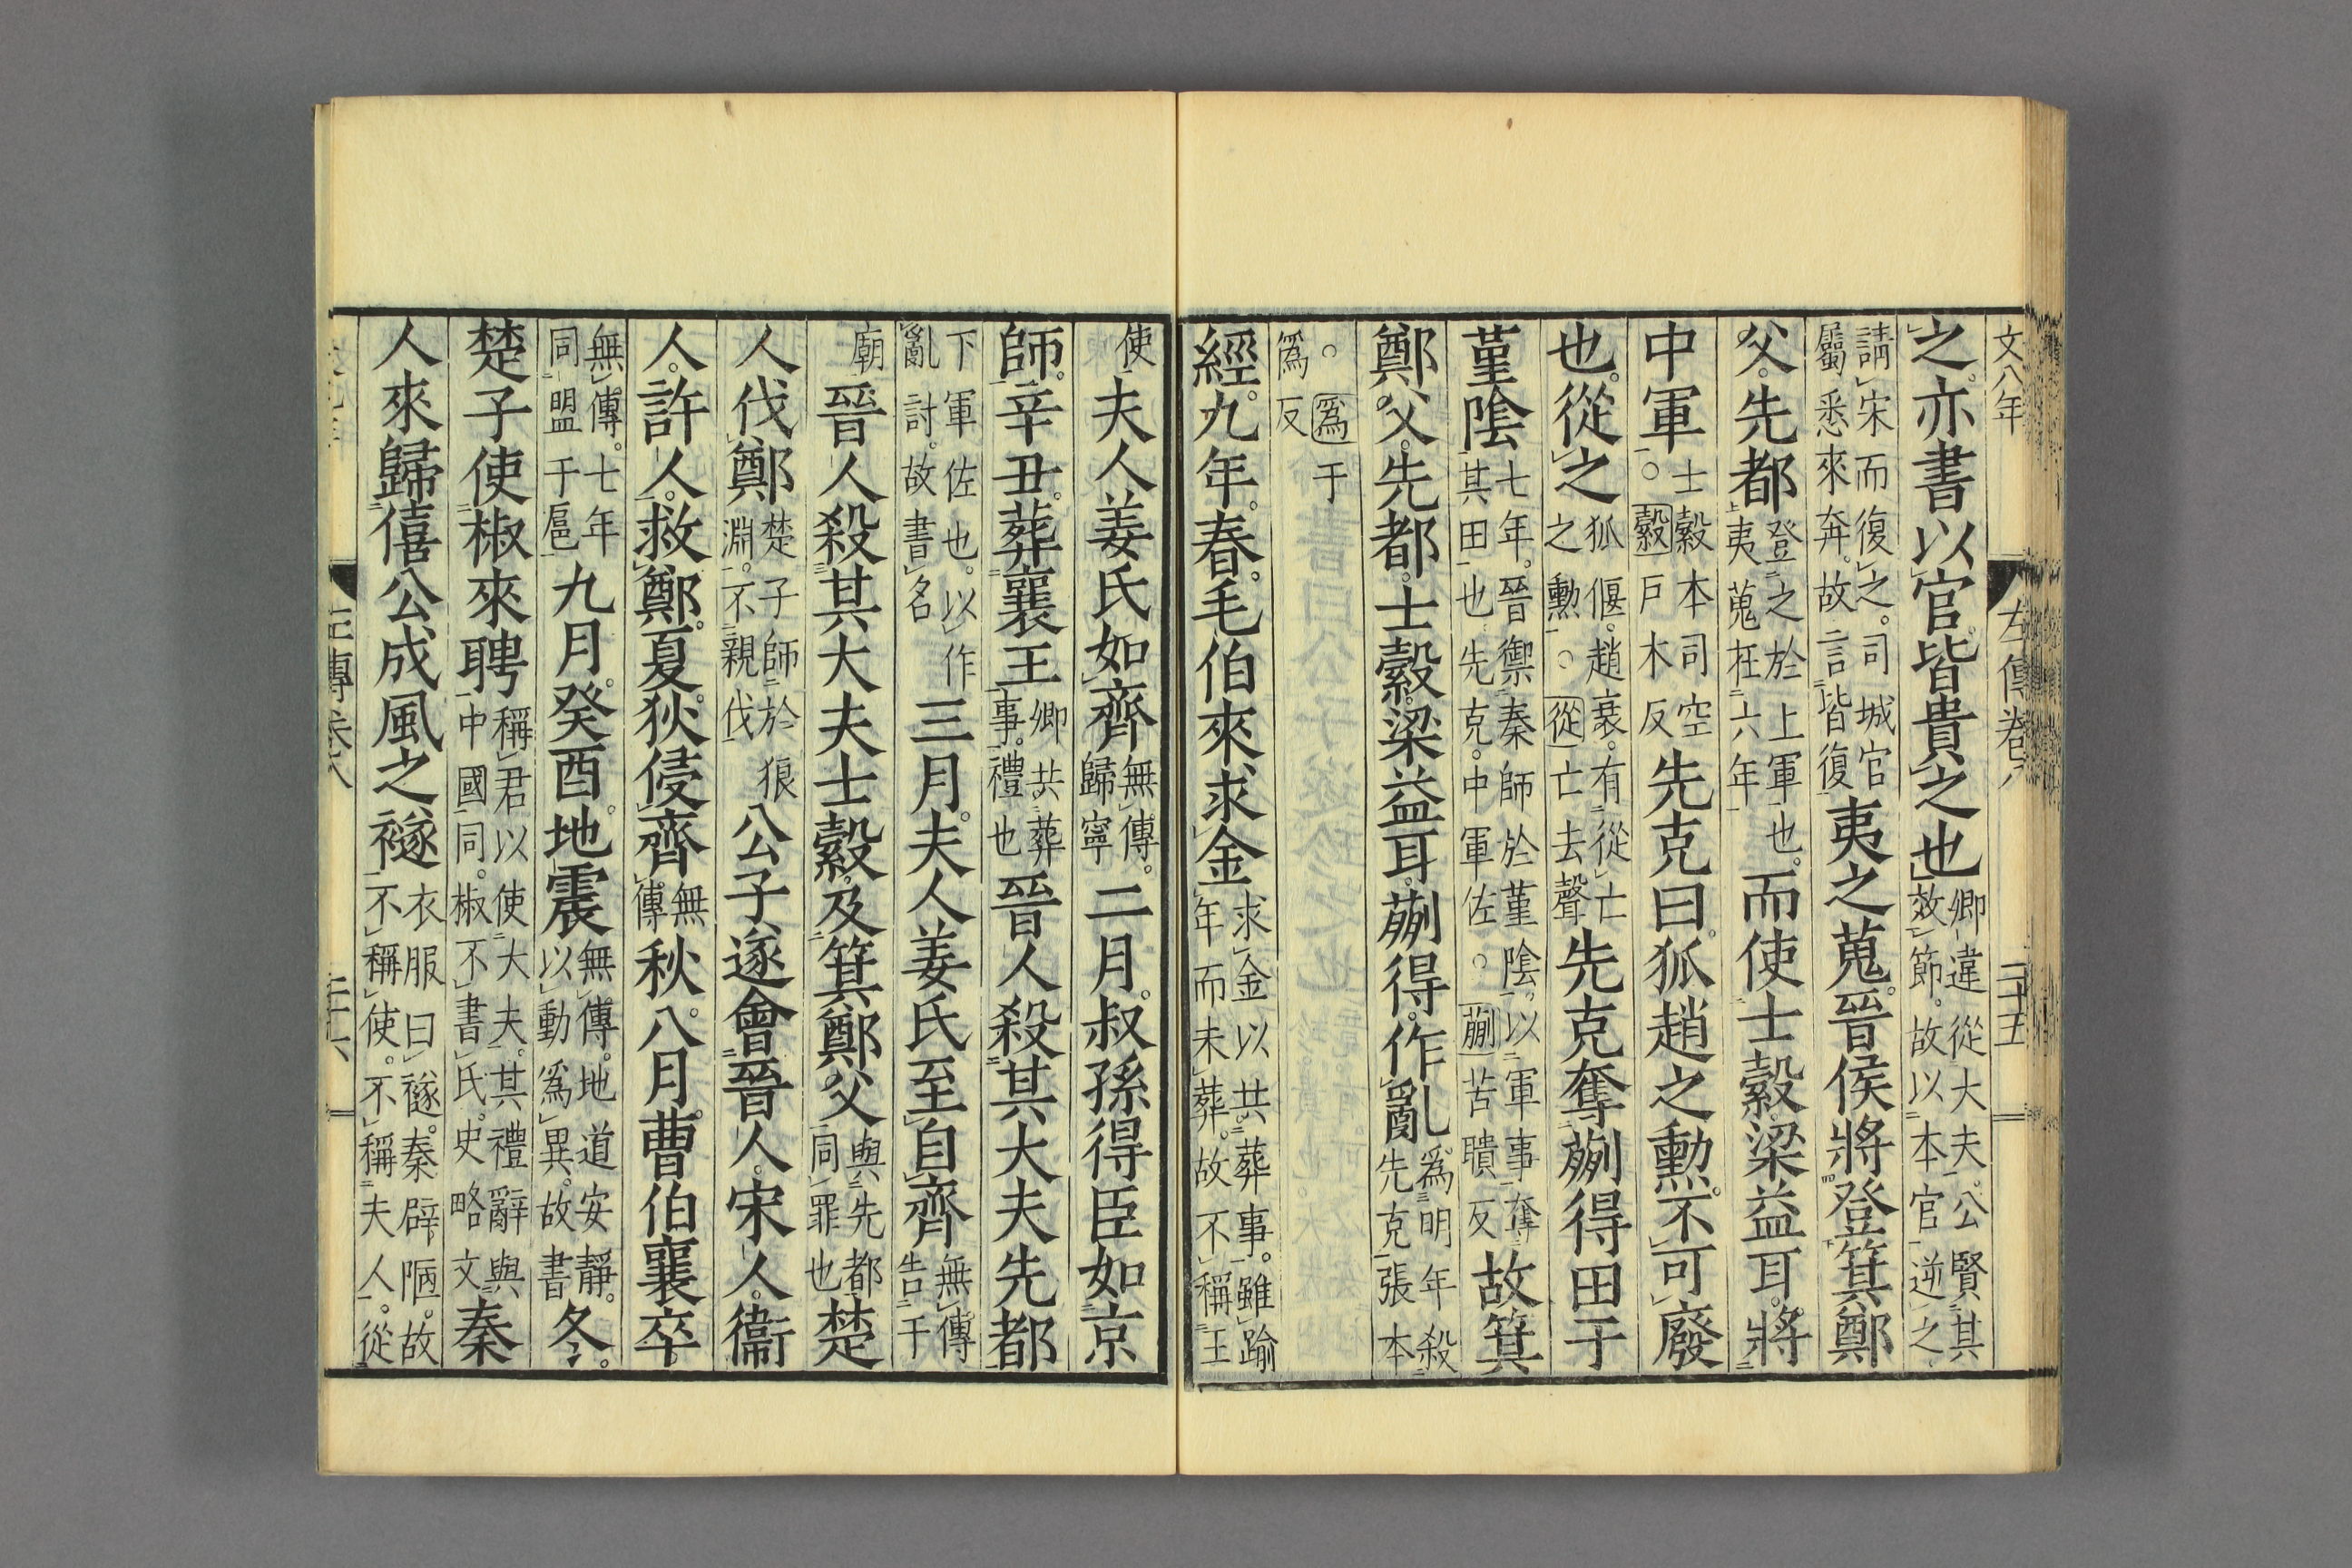 文八年　左傳卷八　二十五
之。亦書以官。皆貴之也卿違從大夫。公賢其效節。故以本官逆之。
請宋而復之。司城官屬悉來奔。故言皆復夷之蒐。晉侯將登箕鄭
父。先都登之於上軍也。夷蒐在六年而使士縠。梁益耳。將
中軍士縠本司空○縠戸木反先克曰。狐趙之勲。不可廢
也。從之狐偃。趙衰。有從亡之勲○從亡去聲先克奪蒯得田于
堇陰七年。晉禦秦師於堇陰。以軍事奪其田也先克。中軍佐○蒯苦聵反故箕
鄭父。先都。士縠。梁益耳。蒯得。作亂爲明年殺先克張本
○爲于爲反
經。九年。春。毛伯來求金求金以共葬事。雖踰年而未葬。故不稱王
使夫人姜氏如齊無傳。歸寧二月。叔孫得臣如京
師。辛丑。葬襄王卿共葬事。禮也晉人殺其大夫先都
下軍佐也。以作亂討。故書名三月。夫人姜氏至自齊無傳告于
廟晉人殺其大夫士縠。及箕鄭父與先都同罪也楚
人伐鄭楚子師於狼淵。不親伐公子遂會晉人。宋人。衞
人。許人。救鄭。夏。狄侵齊。無傳秋。八月。曹伯襄卒。
無傳。七年同盟于扈九月。癸酉。地震無傳。地道安靜。以動爲異。故書冬。
楚子使椒來聘稱君以使大夫。其禮辭與中國同。椒不書氏。史略文秦
人來歸僖公成風之襚衣服曰襚。秦辟陋。故不稱使。不稱夫人。從